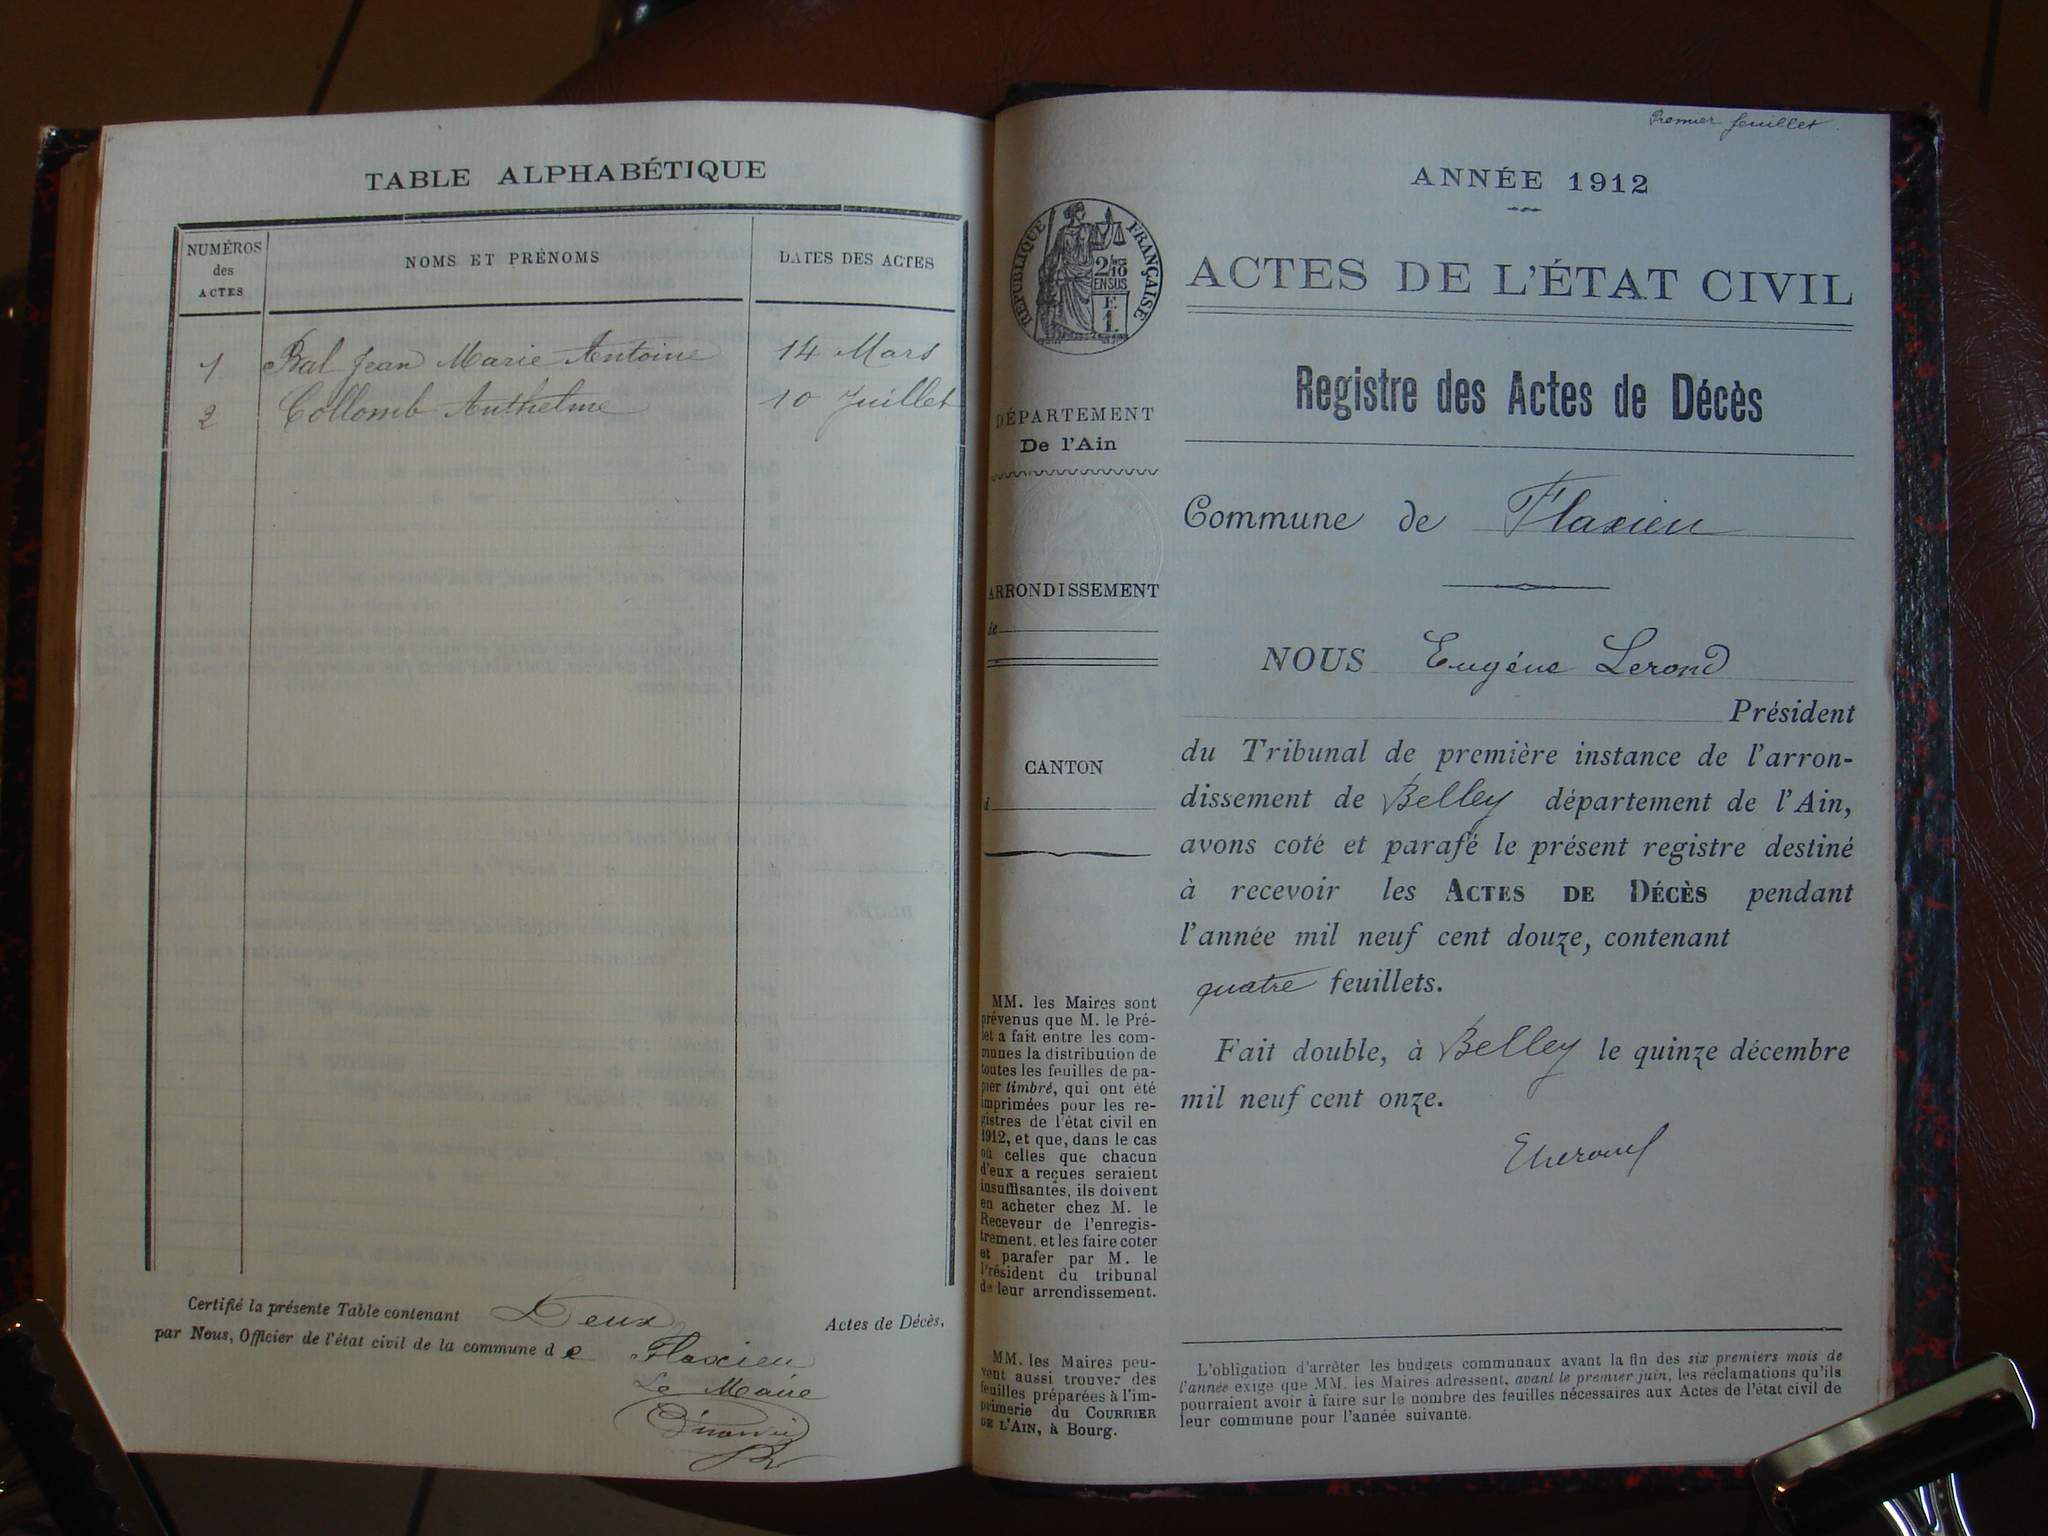 TABLE ALPHABÉTIQUE
NUMÉROS
des
ACTES
NOMS ET PRÉNOMS
DATES DES ACTES
1 Bal Jean Marie Antoine 14 Mars
2 Collomb Anthelme 10 Juillet
Certifié la présente Table contenant Deux Actes de Décès,
par Nous, Officier de l'état civil de la commune de Flaxieu
Le Maire
Premier feuillet
ANNÉE 1912
RÉPUBLIQUE FRANÇAISE
2/10
EN SUS
F
1
ACTES DE L'ÉTAT CIVIL
Registre des Actes de Décès
DÉPARTEMENT
De l'Ain
ARRONDISSEMENT
de
CANTON
d
MM. les Maires sont
prévenus que M. le Pré-
fet a fait entre les com-
munes la distribution de
toutes les feuilles de pa-
pier timbré, qui ont été
imprimées pour les re-
gistres de l'état civil en
1912, et que, dans le cas
où celles que chacun
d'eux a reçues seraient
insuffisantes, ils doivent
en acheter chez M. le
Receveur de l'enregis-
trement, et les faire coter
et parafer par M. le
Président du tribunal
de leur arrondissement.
MM. les Maires peu-
vent aussi trouver des
feuilles préparées à l'im-
primerie du COURRIER
DE L'AIN, à Bourg.
Commune de Flaxieu
NOUS Eugène Lerond
Président
du Tribunal de première instance de l'arron-
dissement de Belley département de l'Ain,
avons coté et parafé le présent registre destiné
à recevoir les ACTES DE DÉCÈS pendant
l'année mil neuf cent douze, contenant
quatre feuillets.
Fait double, à Belley le quinze décembre
mil neuf cent onze.
L'obligation d'arrêter les budgets communaux avant la fin des six premiers mois de
l'année exige que MM. les Maires adressent, avant le premier juin, les réclamations qu'ils
pourraient avoir à faire sur le nombre des feuilles nécessaires aux Actes de l'état civil de
leur commune pour l'année suivante.